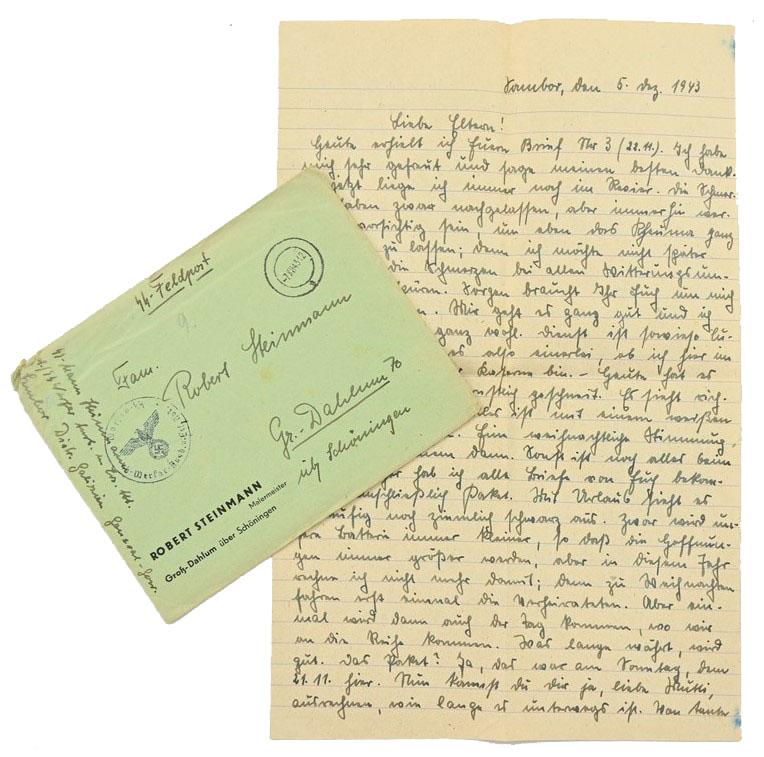 Sambor, den 5. Dez. 1943
Liebe Eltern!
Heute erhielt ich Euern Brief Nr 3 (22.11.). Ich habe
mich sehr gefreut und sage meinen besten Dank.
Jetzt liege ich immer noch im Revier. Die Schmer-
haben zwar nachgelassen, aber immerhin wer-
vorsichtig sein, um eben das Rheuma ganz
zu lassen; denn ich möchte nicht später
die Schmerzen bei allen Witterungsum-
spüren. Sorgen braucht Ihr Euch um mich
Mir geht es ganz gut und ich
ganz wohl. Dienst ist sowieso
es also einerlei, ob ich hier im
Kaserne bin. – Heute hat es
geschneit. Es sieht rich-
ist mit einem weißen
Eine weihnachtliche Stimmung
einem dann. Sonst ist noch alles beim
hab ich alle Briefe von Euch bekom-
einschließlich Paket. Mit Urlaub sieht es
noch ziemlich schwarz aus. Zwar wird un-
sere Batterie immer kleiner, so daß die Hoffnun-
gen immer größer werden, aber in diesem Jahr
rechne ich nicht mehr damit; denn zu Weihnachten
fahren erst einmal die Verheirateten. Aber ein-
mal wird dann auch der Tag kommen, wo wir
an die Reihe kommen. Was lange währt, wird
gut. Das Paket? Ja, das war am Sonntag, dem
21.11. hier. Nun kannst Du Dir ja, liebe Mutti,
ausrechnen, wie lange es unterwegs ist. Von Tante
SS-Feldpost
9.
Fam.
Robert Steinmann
Gr. Dahlum 70
üb/ Schöningen
ROBERT STEINMANN
Malermeister
Groß-Dahlum über Schöningen
SS-Mann Steinmann
Sambor Distr. Galizien General-Gouv.